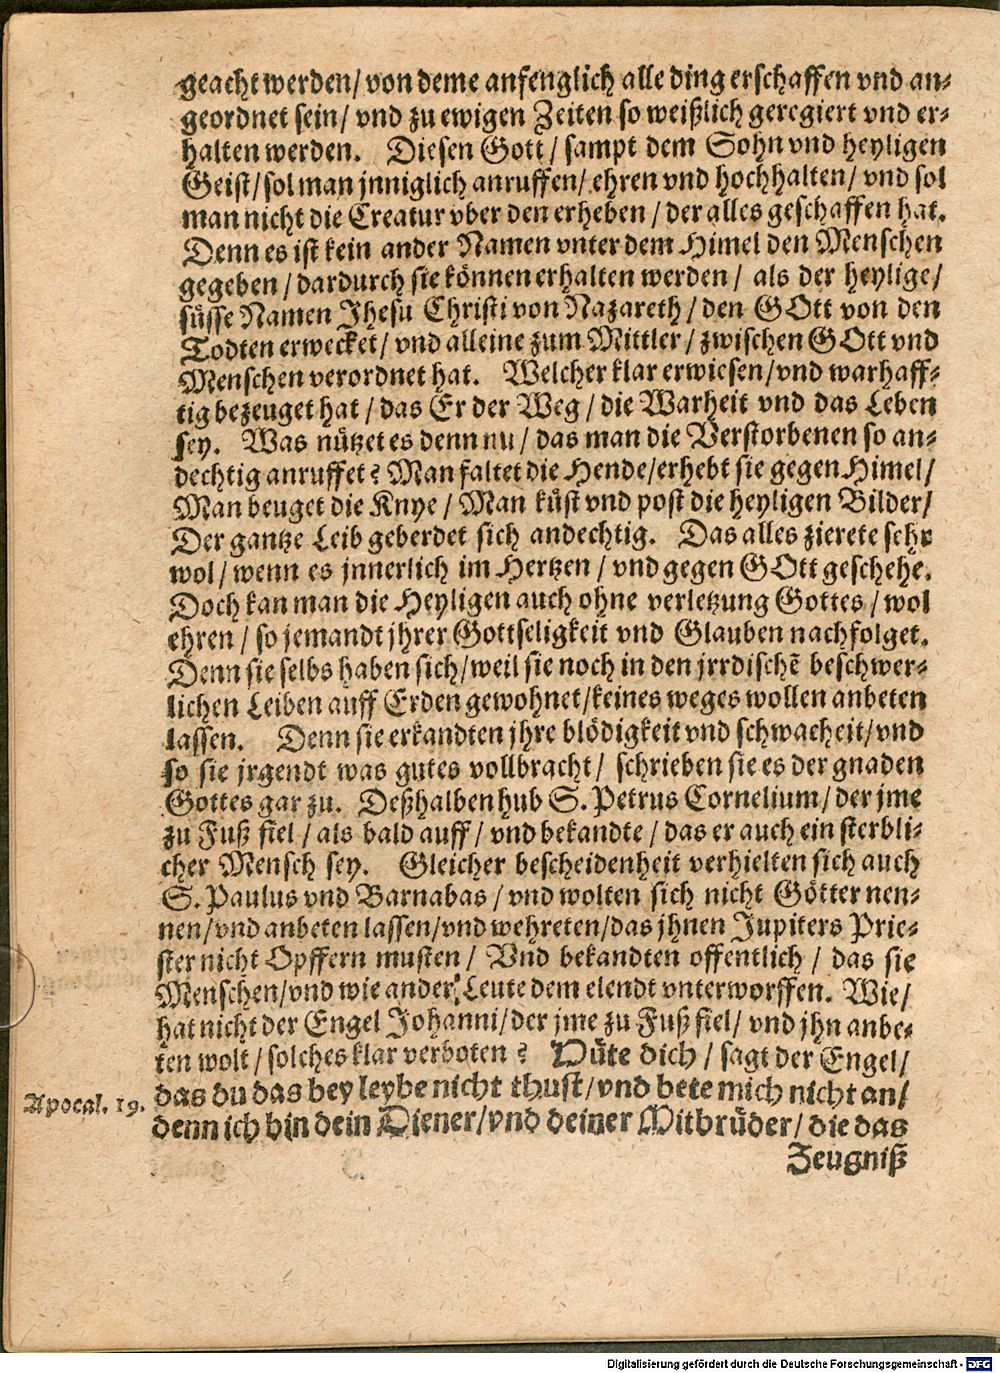 geacht werden/ von deme anfenglich alle ding erschaffen vnd an-
geordnet sein/ vnd zu ewigen Zeiten so weißlich geregiert vnd er-
halten werden. Diesen Gott/ sampt dem Sohn vnd heyligen
Geist/ sol man jnniglich anruffen/ ehren vnd hochhalten/ vnd sol
man nicht die Creatur vber den erheben/ der alles geschaffen hat.
Denn es ist kein ander Namen vnter dem Himel den Menschen
gegeben/ dardurch sie können erhalten werden/ als der heylige/
süsse Namen Jhesu Christi von Nazareth/ den GOtt von den
Todten erwecket/ vnd alleine zum Mittler/ zwischen GOtt vnd
Menschen verordnet hat. Welcher klar erwiesen/ vnd warhaff-
tig bezeuget hat/ das Er der Weg/ die Warheit vnd das Leben
sey. Was nützet es denn nu/ das man die Verstorbenen so an-
dechtig anruffet? Man faltet die Hende/ erhebt sie gegen Himel/
Man beuget die Knye/ Man küst vnd post die heyligen Bilder/
Der gantze Leib geberdet sich andechtig. Das alles zierete sehr
wol/ wenn es jnnerlich im Hertzen/ vnd gegen GOtt geschehe.
Doch kan man die Heyligen auch ohne verletzung Gottes/ wol
ehren/ so jemandt jhrer Gottseligkeit vnd Glauben nachfolget.
Denn sie selbs haben sich/ weil sie noch in den jrrdischẽ beschwer-
lichen Leiben auff Erden gewohnet/ keines weges wollen anbeten
lassen. Denn sie erkandten jhre blödigkeit vnd schwacheit/ vnd
so sie jrgendt was gutes vollbracht/ schrieben sie es der gnaden
Gottes gar zu. Deßhalben hub S. Petrus Cornelium/ der jme
zu Fuß fiel/ als bald auff/ vnd bekandte/ das er auch ein sterbli-
cher Mensch sey. Gleicher bescheidenheit verhielten sich auch
S. Paulus vnd Barnabas/ vnd wolten sich nicht Götter nen-
nen/ vnd anbeten lassen/ vnd wehreten/ das jhnen Jupiters Prie-
ster nicht Opffern musten/ Vnd bekandten offentlich/ das sie
Menschen/ vnd wie ander Leute dem elendt vnterworffen. Wie/
hat nicht der Engel Johanni/ der jme zu Fuß fiel/ vnd jhn anbe-
ten wolt/ solches klar verboten? Hüte dich/ sagt der Engel/
Apocal. 19. das du das bey leybe nicht thust/ vnd bete mich nicht an/
denn ich bin dein Diener/ vnd deiner Mitbrüder/ die das
Zeugniß
Digitalisierung gefördert durch die Deutsche Forschungsgemeinschaft - DFG